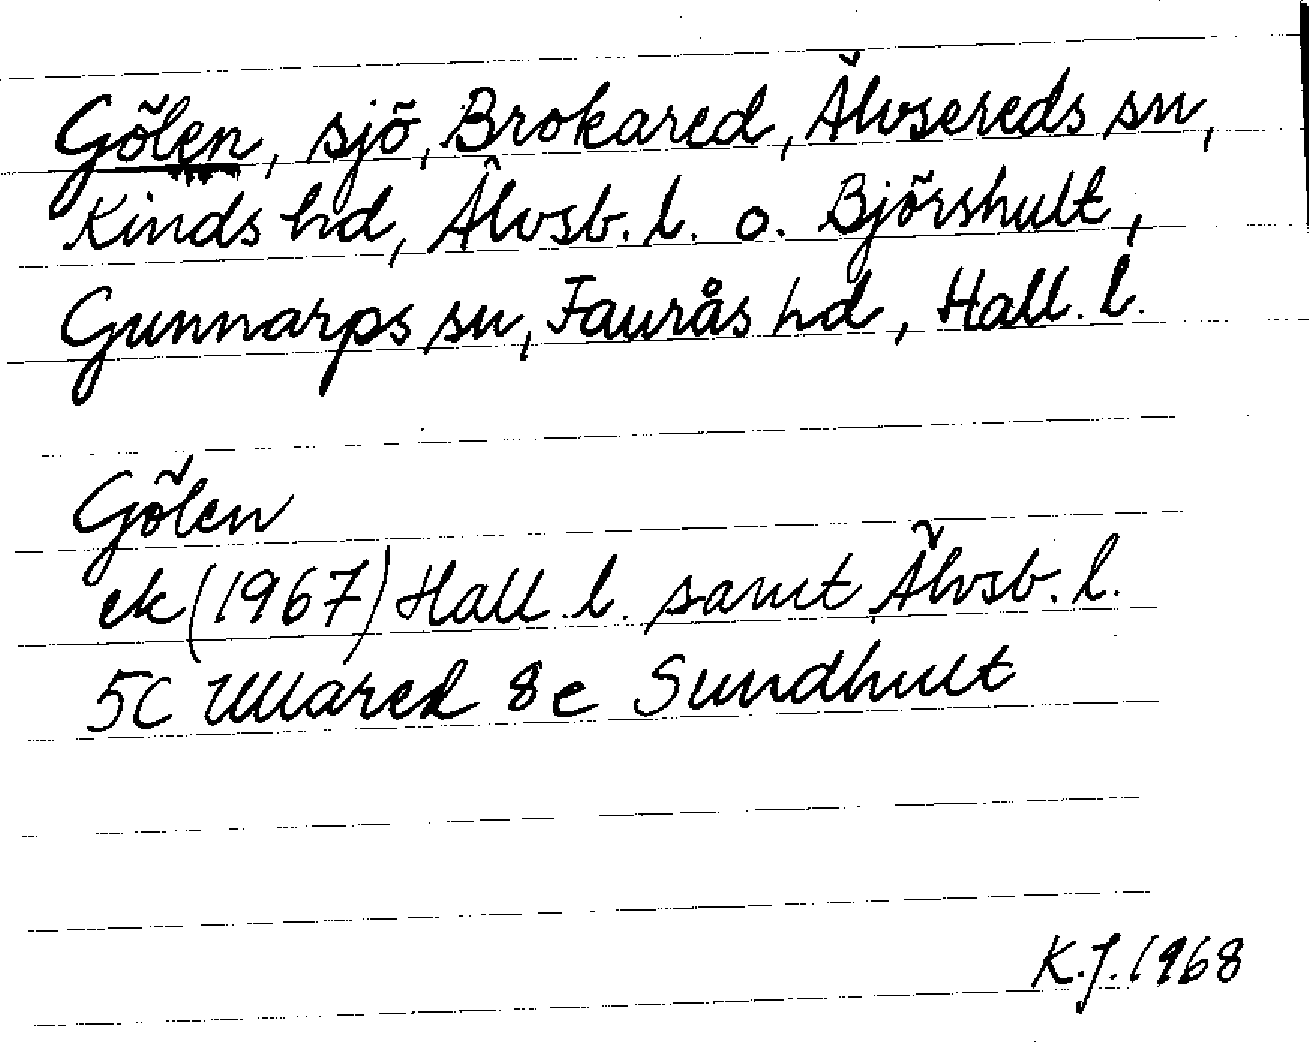 Gölen, sjö, Brokared, Älvsereds sn,
Kinds hd, Älvsb. l. o. Björshult,
Gunnarps sn, Faurås hd, Hall. l.
Gölen
ek (1967) Hall. l. samt Älvsb. l.
5C Ullared 8e Sundhult
K.J. 1968